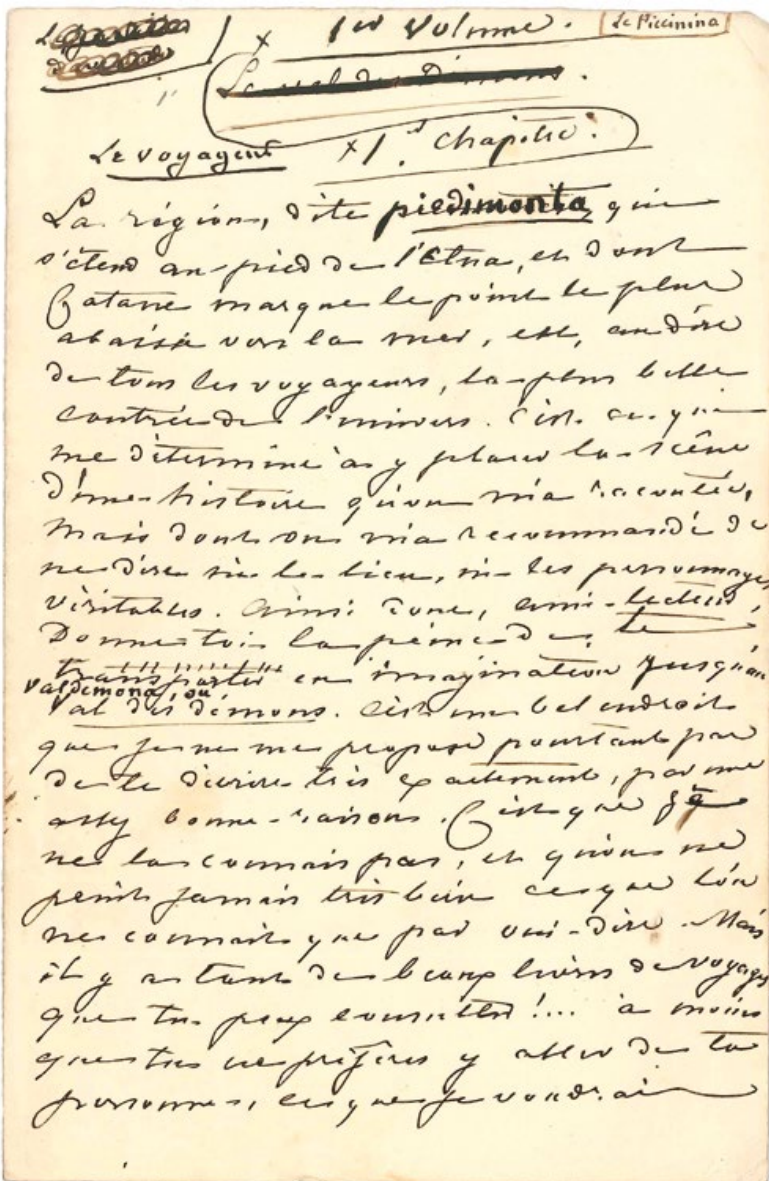 1er Volume.
Le Piccinina
Le val des Démons.
Le voyageur
1er. Chapitre.
La région, dite piedimonta, qui
s'étend au pied de l'Etna, et dont
Catane marque le point le plus
abaissé vers la mer, est, au dire
de tous les voyageurs, la plus belle
contrée de l'univers. C'est ce qui
me détermine à y placer la scène
d'une histoire qu'on m'a racontée,
mais dont on m'a recommandé de
ne dire ni le lieu, ni les personnages
véritables. Ainsi donc, ami lecteur,
Donne-toi la peine de te
transporter en imagination jusqu'au
Valdemona, ou
Val des démons. C'est un bel endroit
que je ne me propose pourtant pas
de te décrire très exactement, par une
assez bonne raison. C'est que je
ne le connais pas, et qu'on ne
peint jamais très bien ce que l'on
ne connait que par ouï-dire. Mais
il y a tant de beaux livres de voyages
que tu peux consulter!... à moins
que tu ne préfères y aller de ta
personne, ce que je voudrais